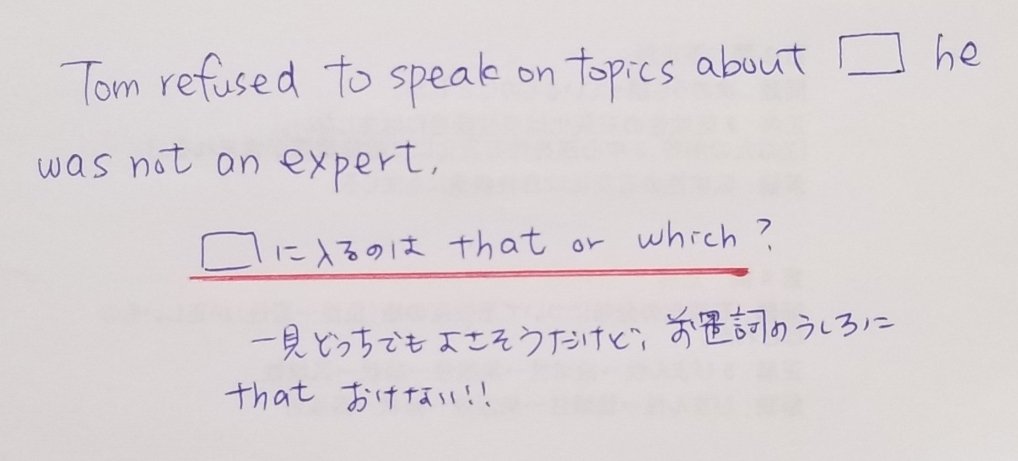 Tom refused to speak on topics about □ he
was not an expert.
□に入るのは that or which?
一見どっちでもよさそうだけど、前置詞のうしろに
that おけない!!